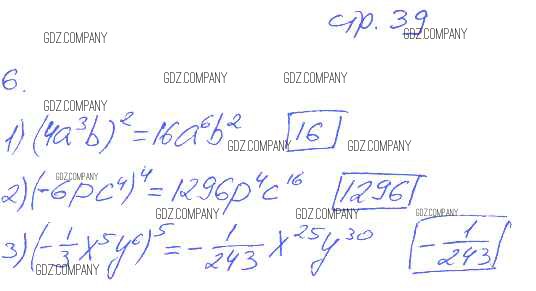 стр. 39
GDZ.COMPANY GDZ.COMPANY
GDZ.COMPANY GDZ.COMPANY
6.
GDZ.COMPANY
1) (4a³b)² = 16a⁶b² 16
GDZ.COMPANY GDZ.COMPANY
GDZ.COMPANY
2) (-6pc⁴)⁴ = 1296p⁴c¹⁶ 1296
GDZ.COMPANY GDZ.COMPANY GDZ.COMPANY
3) (-1/3 x⁵y⁶)⁵ = -1/243 x²⁵y³⁰ -1/243
GDZ.COMPANY